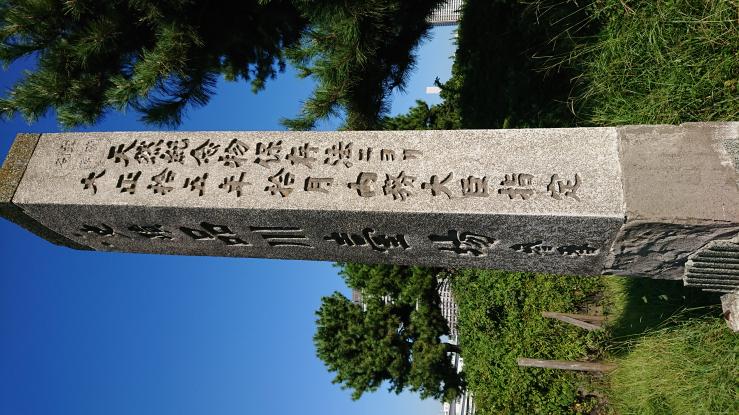 史蹟名勝天然紀念物保存法ニヨリ
大正拾五年拾月内務大臣指定
史蹟品川臺場